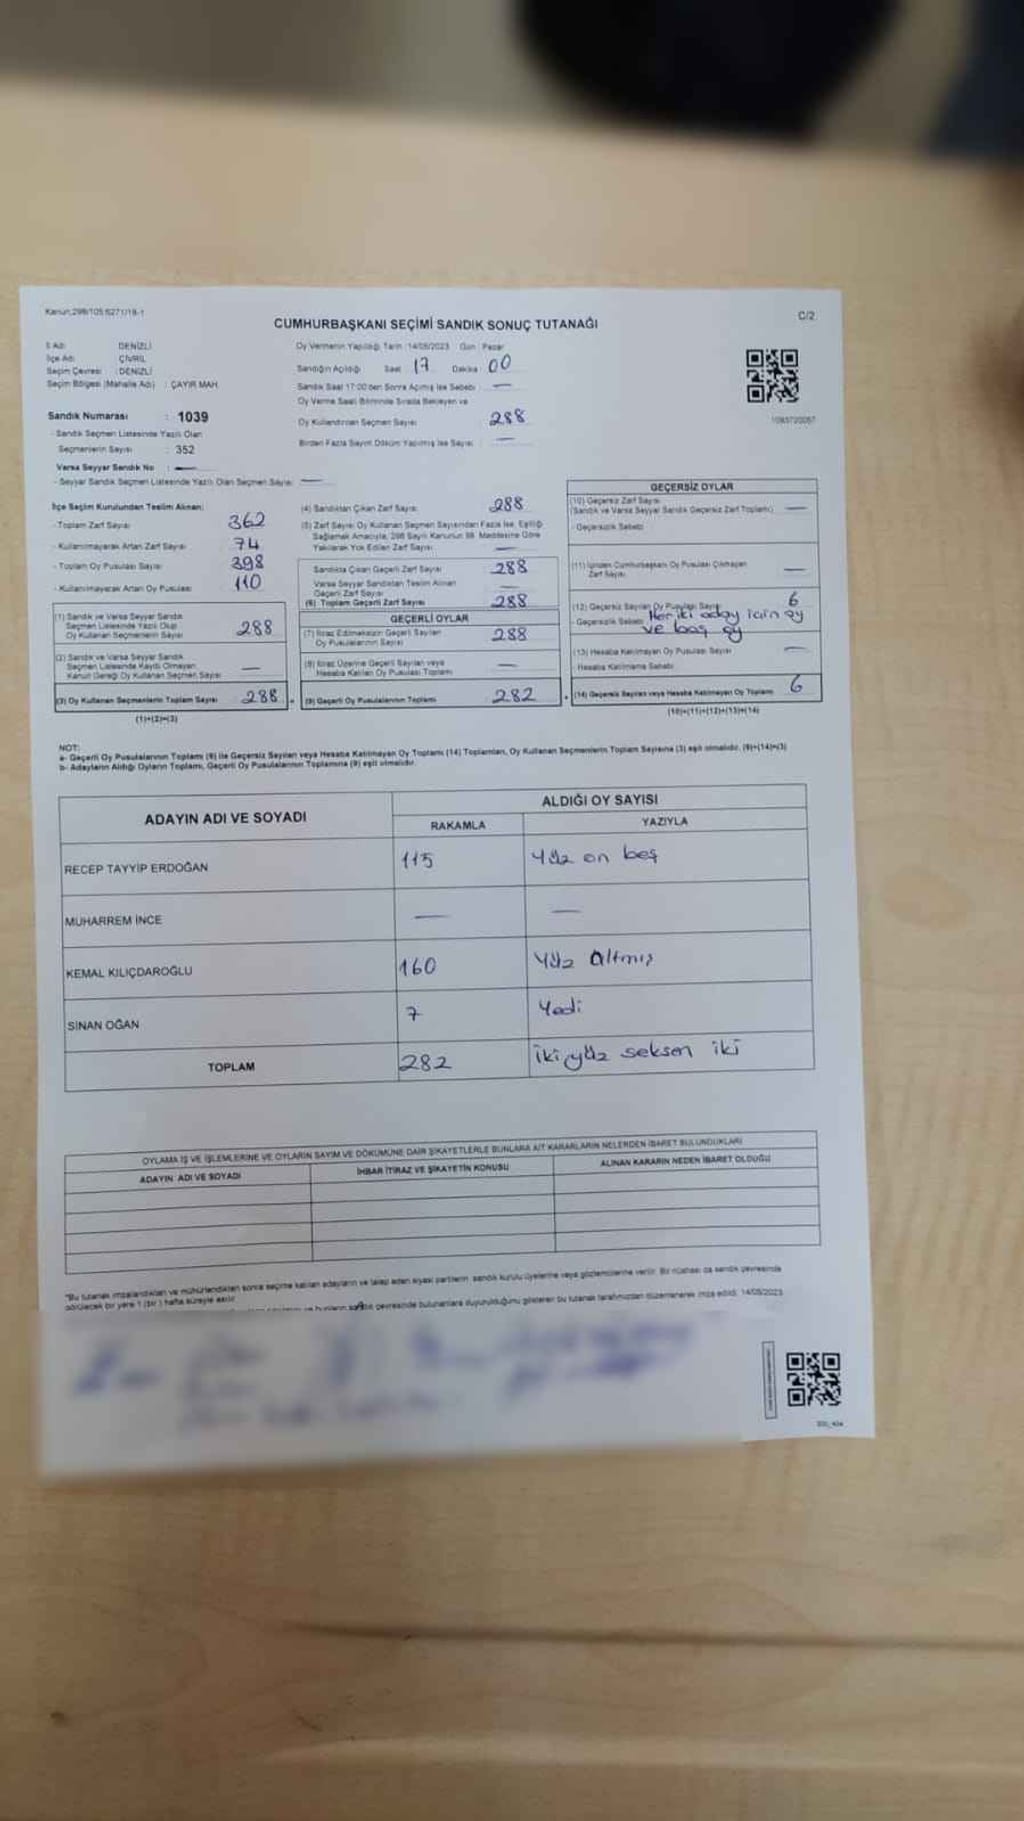 Kanun:298/105;6271/19-1
CUMHURBAŞKANI SEÇİMİ SANDIK SONUÇ TUTANAĞI
C/2
İl Adı : DENİZLİ
İlçe Adı : ÇİVRİL
Seçim Çevresi : DENİZLİ
Seçim Bölgesi (Mahalle Adı) : ÇAYIR MAH.
Sandık Numarası : 1039
- Sandık Seçmen Listesinde Yazılı Olan
Seçmenlerin Sayısı : 352
Varsa Seyyar Sandık No : —
- Seyyar Sandık Seçmen Listesinde Yazılı Olan Seçmen Sayısı : —
Oy Vermenin Yapıldığı Tarih : 14/05/2023 Gün : Pazar
Sandığın Açıldığı Saat 17 Dakika 00
Sandık Saat 17:00'den Sonra Açılmış İse Sebebi : —
Oy Verme Saati Bitiminde Sırada Bekleyen ve
Oy Kullandırılan Seçmen Sayısı : 288
Birden Fazla Sayım Döküm Yapılmış İse Sayısı : —
1093720057
İlçe Seçim Kurulundan Teslim Alınan:
- Toplam Zarf Sayısı 362
- Kullanılmayarak Artan Zarf Sayısı 74
- Toplam Oy Pusulası Sayısı 398
- Kullanılmayarak Artan Oy Pusulası 110
(1) Sandık ve Varsa Seyyar Sandık
Seçmen Listesinde Yazılı Olup
Oy Kullanan Seçmenlerin Sayısı 288
(2) Sandık ve Varsa Seyyar Sandık
Seçmen Listesinde Kayıtlı Olmayan
Kanun Gereği Oy Kullanan Seçmen Sayısı —
(3) Oy Kullanan Seçmenlerin Toplam Sayısı 288
(1)+(2)=(3)
(4) Sandıktan Çıkan Zarf Sayısı 288
(5) Zarf Sayısı Oy Kullanan Seçmen Sayısından Fazla İse, Eşitliği
Sağlamak Amacıyla, 298 Sayılı Kanunun 98. Maddesine Göre
Yakılarak Yok Edilen Zarf Sayısı —
Sandıkta Çıkan Geçerli Zarf Sayısı 288
Varsa Seyyar Sandıktan Teslim Alınan
Geçerli Zarf Sayısı —
(6) Toplam Geçerli Zarf Sayısı 288
GEÇERLİ OYLAR
(7) İtiraz Edilmeksizin Geçerli Sayılan
Oy Pusulalarının Sayısı 288
(8) İtiraz Üzerine Geçerli Sayılan veya
Hesaba Katılan Oy Pusulası Toplamı —
(9) Geçerli Oy Pusulalarının Toplamı 282
GEÇERSİZ OYLAR
(10) Geçersiz Zarf Sayısı
(Sandık ve Varsa Seyyar Sandık Geçersiz Zarf Toplamı) —
- Geçersizlik Sebebi
(11) İçinden Cumhurbaşkanı Oy Pusulası Çıkmayan
Zarf Sayısı —
(12) Geçersiz Sayılan Oy Pusulası Sayısı 6
- Geçersizlik Sebebi Her iki aday için oy
ve boş oy
(13) Hesaba Katılmayan Oy Pusulası Sayısı —
- Hesaba Katılmama Sebebi
(14) Geçersiz Sayılan veya Hesaba Katılmayan Oy Toplamı 6
(10)+(11)+(12)+(13)=(14)
NOT:
a- Geçerli Oy Pusulalarının Toplamı (9) ile Geçersiz Sayılan veya Hesaba Katılmayan Oy Toplamı (14) Toplamları, Oy Kullanan Seçmenlerin Toplam Sayısına (3) eşit olmalıdır. (9)+(14)=(3)
b- Adayların Aldığı Oyların Toplamı, Geçerli Oy Pusulalarının Toplamına (9) eşit olmalıdır.
ADAYIN ADI VE SOYADI
ALDIĞI OY SAYISI
RAKAMLA YAZIYLA
RECEP TAYYİP ERDOĞAN 115 Yüz on beş
MUHARREM İNCE — —
KEMAL KILIÇDAROĞLU 160 Yüz Altmış
SİNAN OĞAN 7 Yedi
TOPLAM 282 İki yüz seksen iki
OYLAMA İŞ VE İŞLEMLERİNE VE OYLARIN SAYIM VE DÖKÜMÜNE DAİR ŞİKAYETLERLE BUNLARA AİT KARARLARIN NELERDEN İBARET BULUNDUKLARI
ADAYIN ADI VE SOYADI İHBAR İTİRAZ VE ŞİKAYETİN KONUSU ALINAN KARARIN NEDEN İBARET OLDUĞU
"Bu tutanak imzalandıktan ve mühürlendikten sonra seçime katılan adayların ve talep eden siyasi partilerin sandık kurulu üyelerine veya gözlemcilerine verilir. Bir nüshası da sandık çevresinde
görülecek bir yere 1 (bir) hafta süreyle asılır.
çevresinde bulunanlara duyurulduğunu gösteren bu tutanak tarafımızdan düzenlenerek imza edildi. 14/05/2023